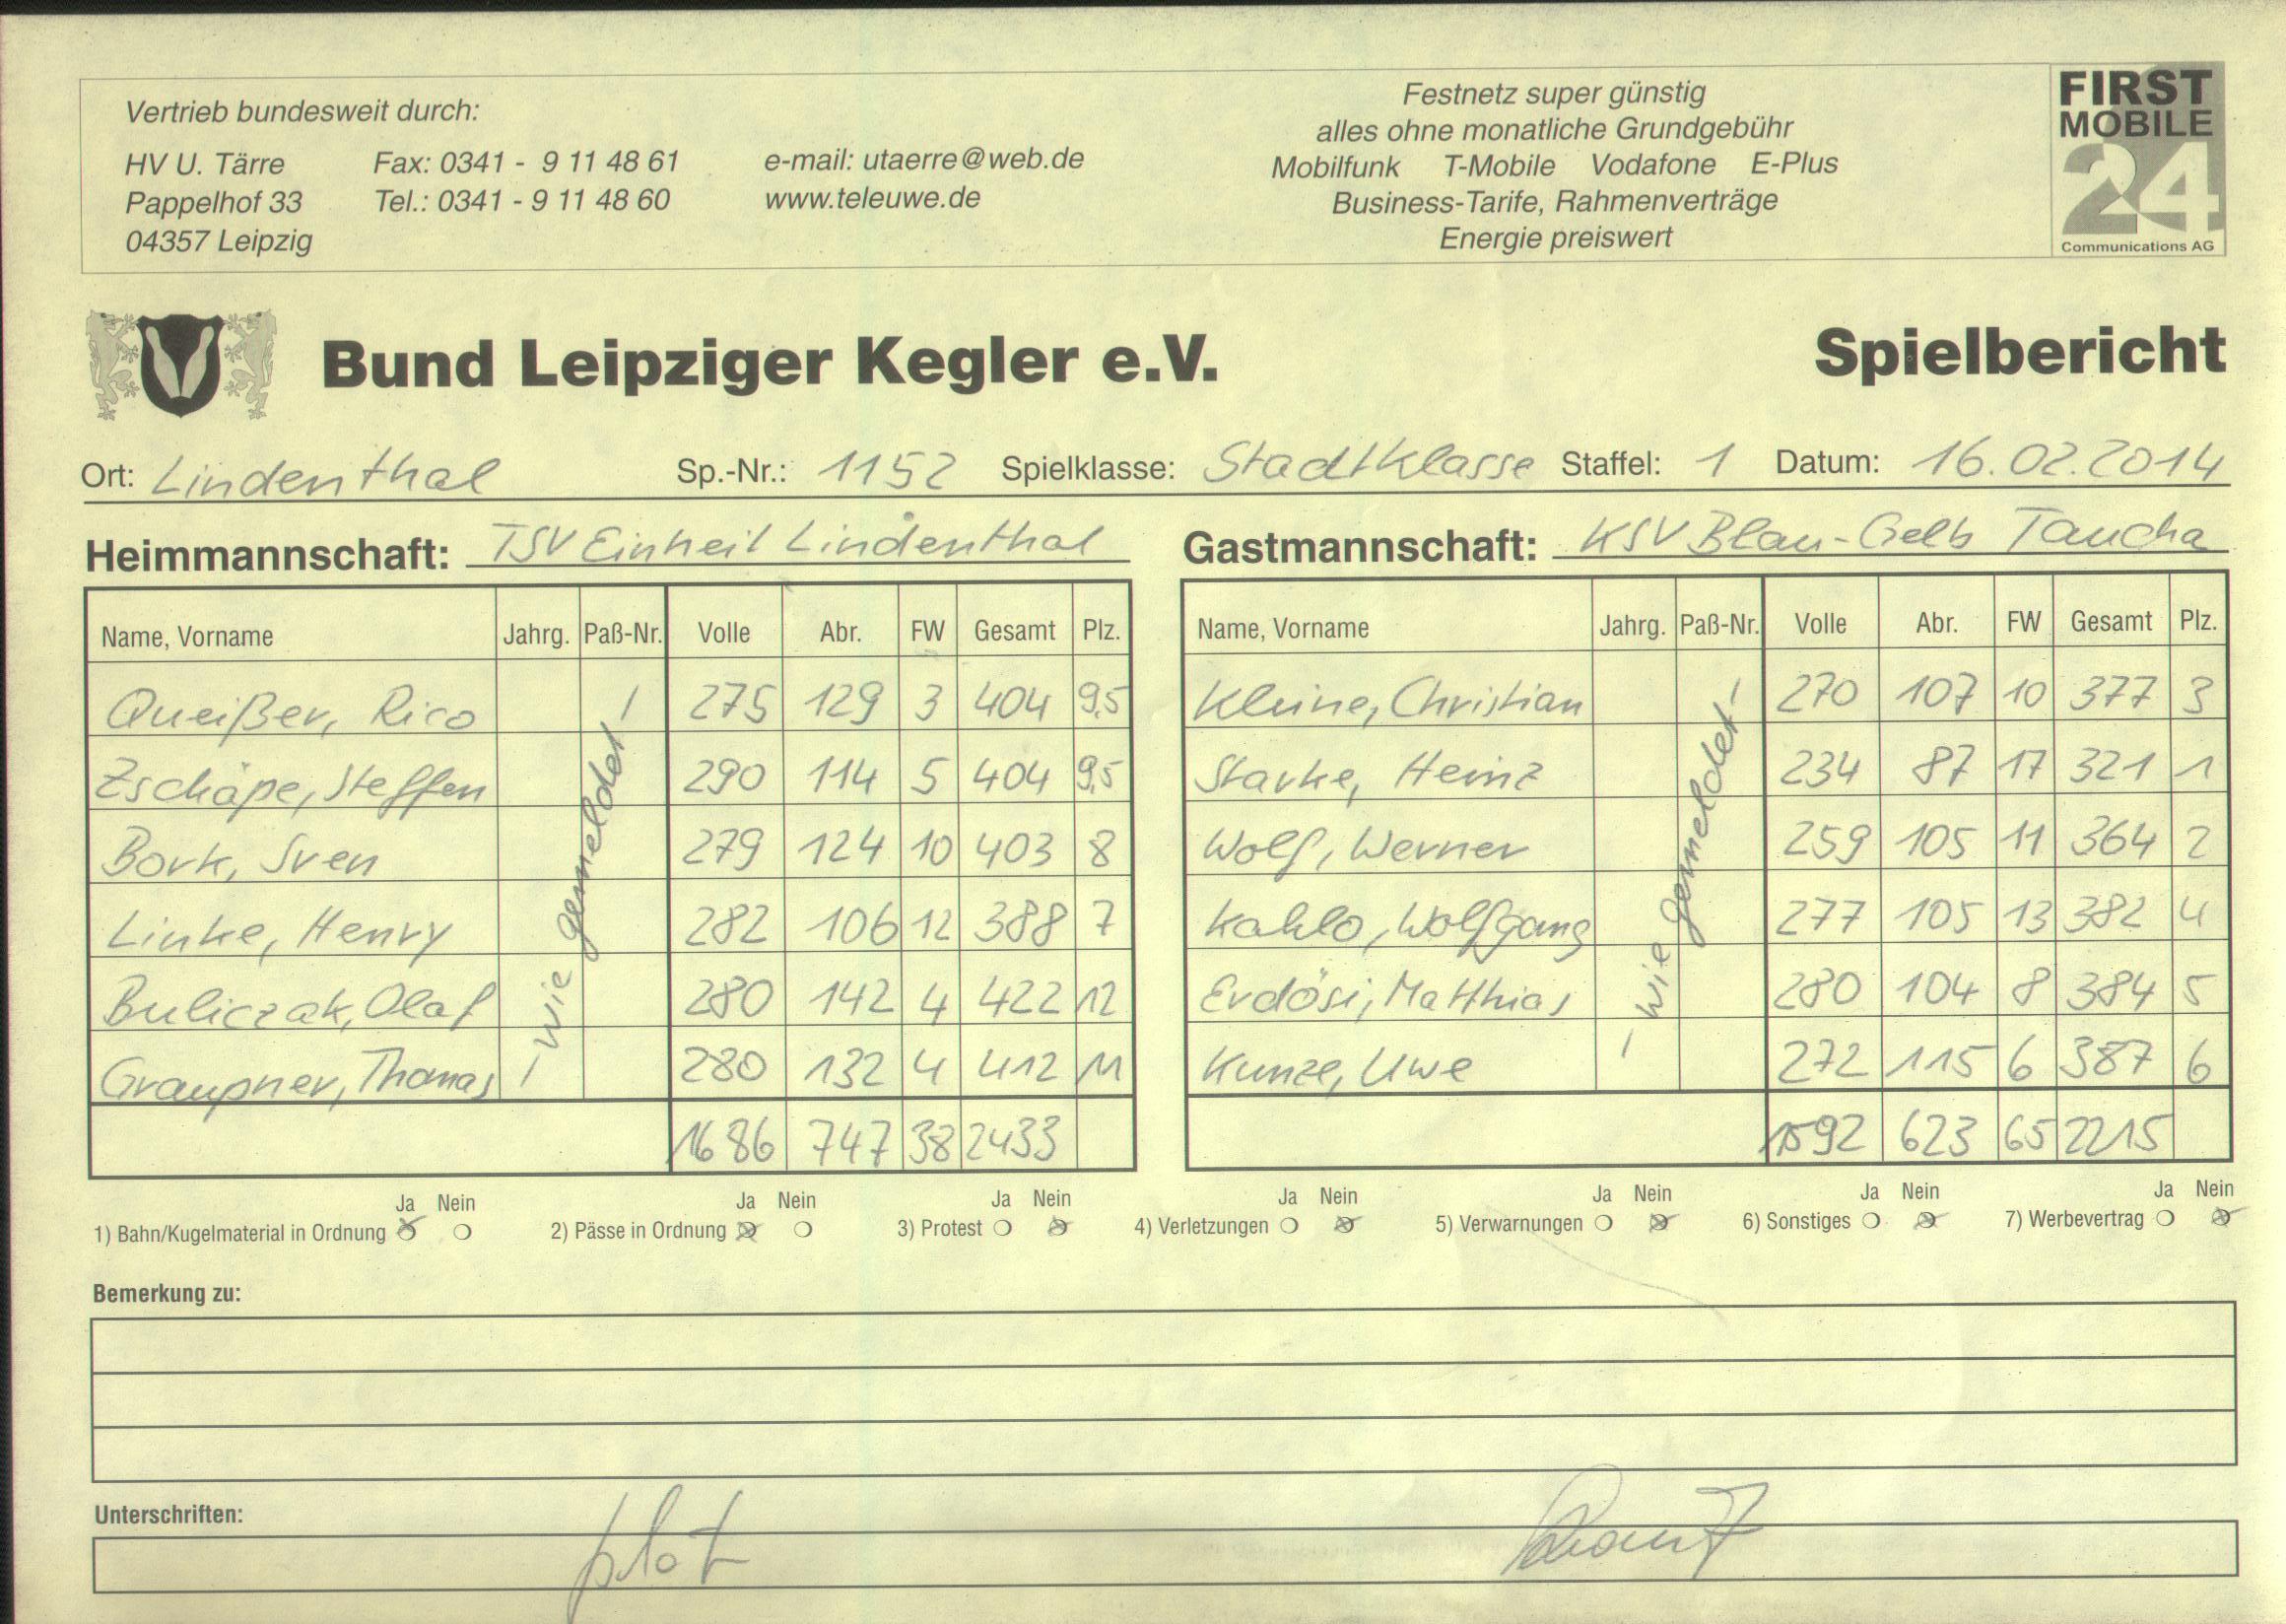 Vertrieb bundesweit durch:
HV U. Tärre Fax: 0341 - 9 11 48 61 e-mail: utaerre@web.de
Pappelhof 33 Tel.: 0341 - 9 11 48 60 www.teleuwe.de
04357 Leipzig
Festnetz super günstig
alles ohne monatliche Grundgebühr
Mobilfunk T-Mobile Vodafone E-Plus
Business-Tarife, Rahmenverträge
Energie preiswert
FIRST
MOBILE
24
Communications AG
Bund Leipziger Kegler e.V. Spielbericht
Ort: Lindenthal Sp.-Nr.: 1152 Spielklasse: Stadtklasse Staffel: 1 Datum: 16.02.2014
Heimmannschaft: TSV Einheit Lindenthal
Name, Vorname Jahrg. Paß-Nr. Volle Abr. FW Gesamt Plz.
Queißer, Rico 275 129 3 404 9,5
Zschäpe, Steffen 290 114 5 404 9,5
Bork, Sven 279 124 10 403 8
Linke, Henry 282 106 12 388 7
Buliczak, Olaf 280 142 4 422 12
Graupner, Thomas 280 132 4 412 11
- wie gemeldet -
1686 747 38 2433
Gastmannschaft: KSV Blau-Gelb Taucha
Name, Vorname Jahrg. Paß-Nr. Volle Abr. FW Gesamt Plz.
Kleine, Christian 270 107 10 377 3
Starke, Heinz 234 87 17 321 1
Wolf, Werner 259 105 11 364 2
Kahlo, Wolfgang 277 105 13 382 4
Erdösi, Matthias 280 104 8 384 5
Kunze, Uwe 272 115 6 387 6
- wie gemeldet -
1592 623 65 2215
Ja Nein Ja Nein Ja Nein Ja Nein Ja Nein Ja Nein Ja Nein
1) Bahn/Kugelmaterial in Ordnung 2) Pässe in Ordnung 3) Protest 4) Verletzungen 5) Verwarnungen 6) Sonstiges 7) Werbevertrag
Bemerkung zu:
Unterschriften: